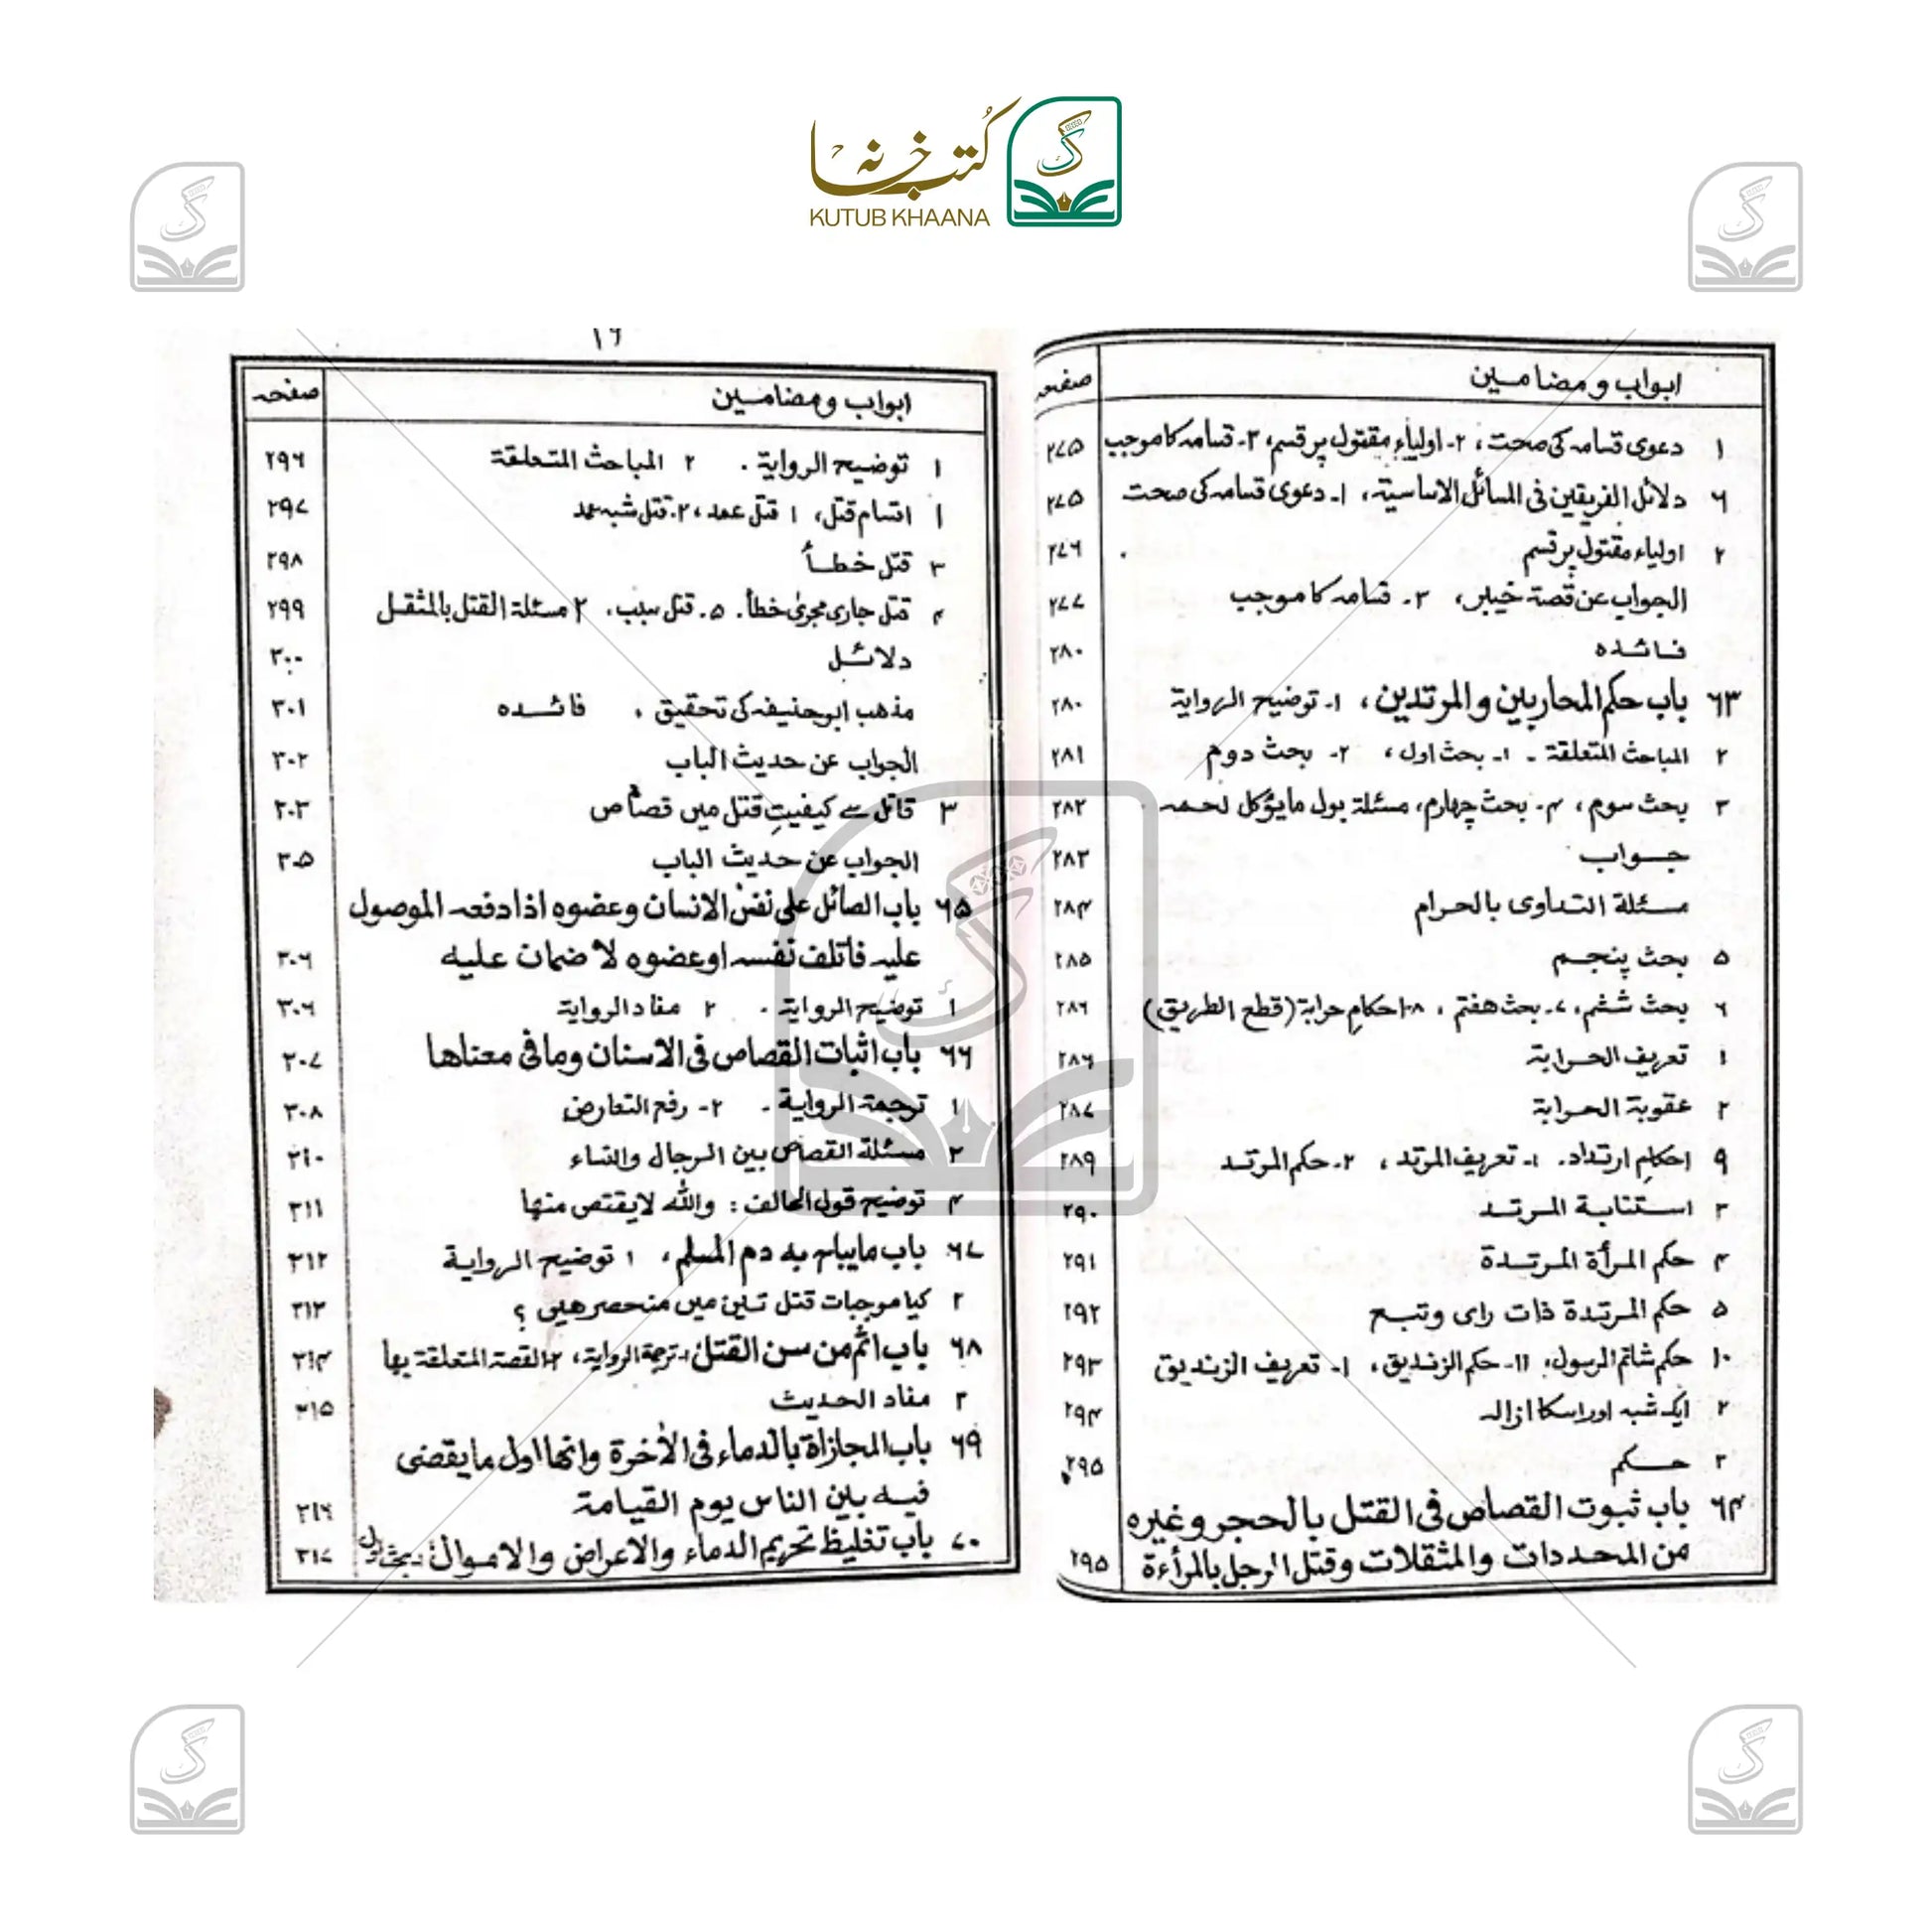 کتب خانہ
KUTUB KHAANA
ابواب و مضامین صفحہ
۱ دعوی قسامہ کی صحت، ۲- اولیاء مقتول پر قسم، ۳- قسامہ کا موجب ۲۷۵
۶ دلائل الفریقین فی المسائل الاساسیۃ، ۱- دعوی قسامہ کی صحت ۲۷۵
۲ اولیاء مقتول پر قسم ۲۷۶
الجواب عن قصۃ خیبر، ۳- قسامہ کا موجب ۲۷۷
فائدہ ۲۸۰
۶۳ باب حکم المحاربین والمرتدین، ۱- توضیح الروایۃ ۲۸۰
۲ المباحث المتعلقۃ - ۱- بحث اول، ۲- بحث دوم ۲۸۱
۳ بحث سوم، ۴- بحث چہارم، مسئلۃ بول مایؤکل لحمہ ۲۸۲
جواب ۲۸۳
مسئلۃ التداوی بالحرام ۲۸۴
۵ بحث پنجم ۲۸۵
۶ بحث ششم، ۷- بحث ہفتم، ۸- احکامِ حرابۃ (قطع الطریق) ۲۸۶
۱ تعریف الحرابۃ ۲۸۶
۲ عقوبۃ الحرابۃ ۲۸۷
۹ احکامِ ارتداد۔ ۱- تعریف المرتد، ۲- حکم المرتد ۲۸۹
۳ استتابۃ المرتد ۲۹۰
۴ حکم المرأۃ المرتدۃ ۲۹۱
۵ حکم المرتدۃ ذات رای وتبع ۲۹۲
۱۰ حکم شاتم الرسول، ۱۱- حکم الزندیق، ۱- تعریف الزندیق ۲۹۳
۲ ایک شبہ اور اسکا ازالہ ۲۹۴
۳ حکم ۲۹۵
۶۴ باب ثبوت القصاص فی القتل بالحجر وغیرہ
من المحددات والمثقلات وقتل الرجل بالمرأءۃ ۲۹۵
۱۶
ابواب و مضامین صفحہ
۱ توضیح الروایۃ . ۲ المباحث المتعلقۃ ۲۹۶
۱ اقسام قتل، ۱ قتل عمد، ۲- قتل شبہ عمد ۲۹۷
۳ قتل خطأ ۲۹۸
۴ قتل جاری مجریٰ خطأ. ۵. قتل سبب، ۲ مسئلۃ القتل بالمثقل ۲۹۹
دلائل ۳۰۰
مذهب ابوحنیفہ کی تحقیق، فائدہ ۳۰۱
الجواب عن حدیث الباب ۳۰۲
۳ قاتل سے کیفیتِ قتل میں قصاص ۳۰۳
الجواب عن حدیث الباب ۳۰۵
۶۵ باب الصائل علی نفس الانسان وعضوہ اذا دفعہ الموصول
علیہ فاتلف نفسہ اوعضوہ لا ضمان علیہ ۳۰۶
۱ توضیح الروایۃ . ۲ مفاد الروایۃ ۳۰۶
۶۶ باب اثبات القصاص فی الاسنان ومافی معناها ۳۰۷
۱ ترجمۃ الروایۃ . ۲- رفع التعارض ۳۰۸
۳ مسئلۃ القصاص بین الرجال والنساء ۳۱۰
۴ توضیح قول الحالف: واللہ لا یقتص منها ۳۱۱
۶۷ باب مایباح بہ دم المسلم، ۱ توضیح الروایۃ ۳۱۲
۲ کیا موجبات قتل تین میں منحصر هیں؟ ۳۱۳
۶۸ باب اثم من سن القتل ۱- ترجمۃ الروایۃ، ۲- القصۃ المتعلقۃ بها ۳۱۴
۳ مفاد الحدیث ۳۱۵
۶۹ باب المجازاۃ بالدماء فی الأخرۃ وانها اول مایقضی
فیہ بین الناس یوم القیامۃ ۳۱۶
۷۰ باب تغلیظ تحریم الدماء والاعراض والاموال : بحث اول ۳۱۷